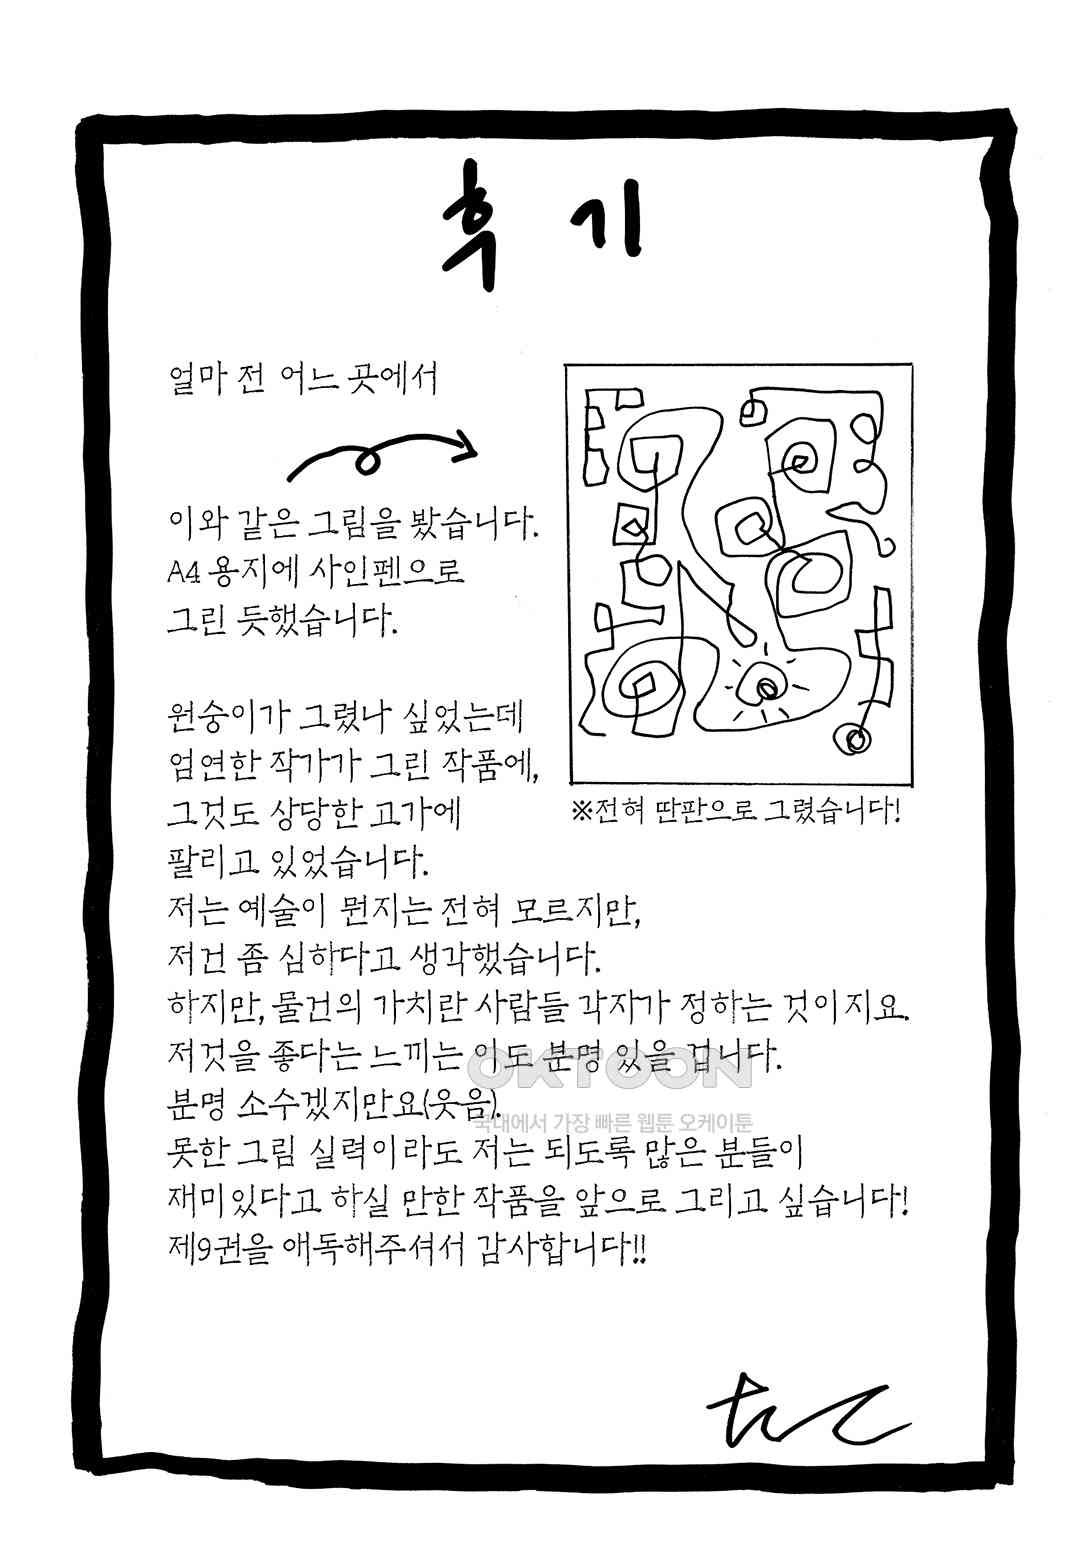 후기
얼마 전 어느 곳에서
이와 같은 그림을 봤습니다.
A4 용지에 사인펜으로
그린 듯했습니다.
※전혀 딴판으로 그렸습니다!
원숭이가 그렸나 싶었는데
엄연한 작가가 그린 작품에,
그것도 상당한 고가에
팔리고 있었습니다.
저는 예술이 뭔지는 전혀 모르지만,
저건 좀 심하다고 생각했습니다.
하지만, 물건의 가치란 사람들 각자가 정하는 것이지요.
저것을 좋다는 느끼는 이도 분명 있을 겁니다.
분명 소수겠지만요(웃음).
못한 그림 실력이라도 저는 되도록 많은 분들이
재미있다고 하실 만한 작품을 앞으로 그리고 싶습니다!
제9권을 애독해주셔서 감사합니다!!
OKTOON
국내에서 가장 빠른 웹툰 오케이툰